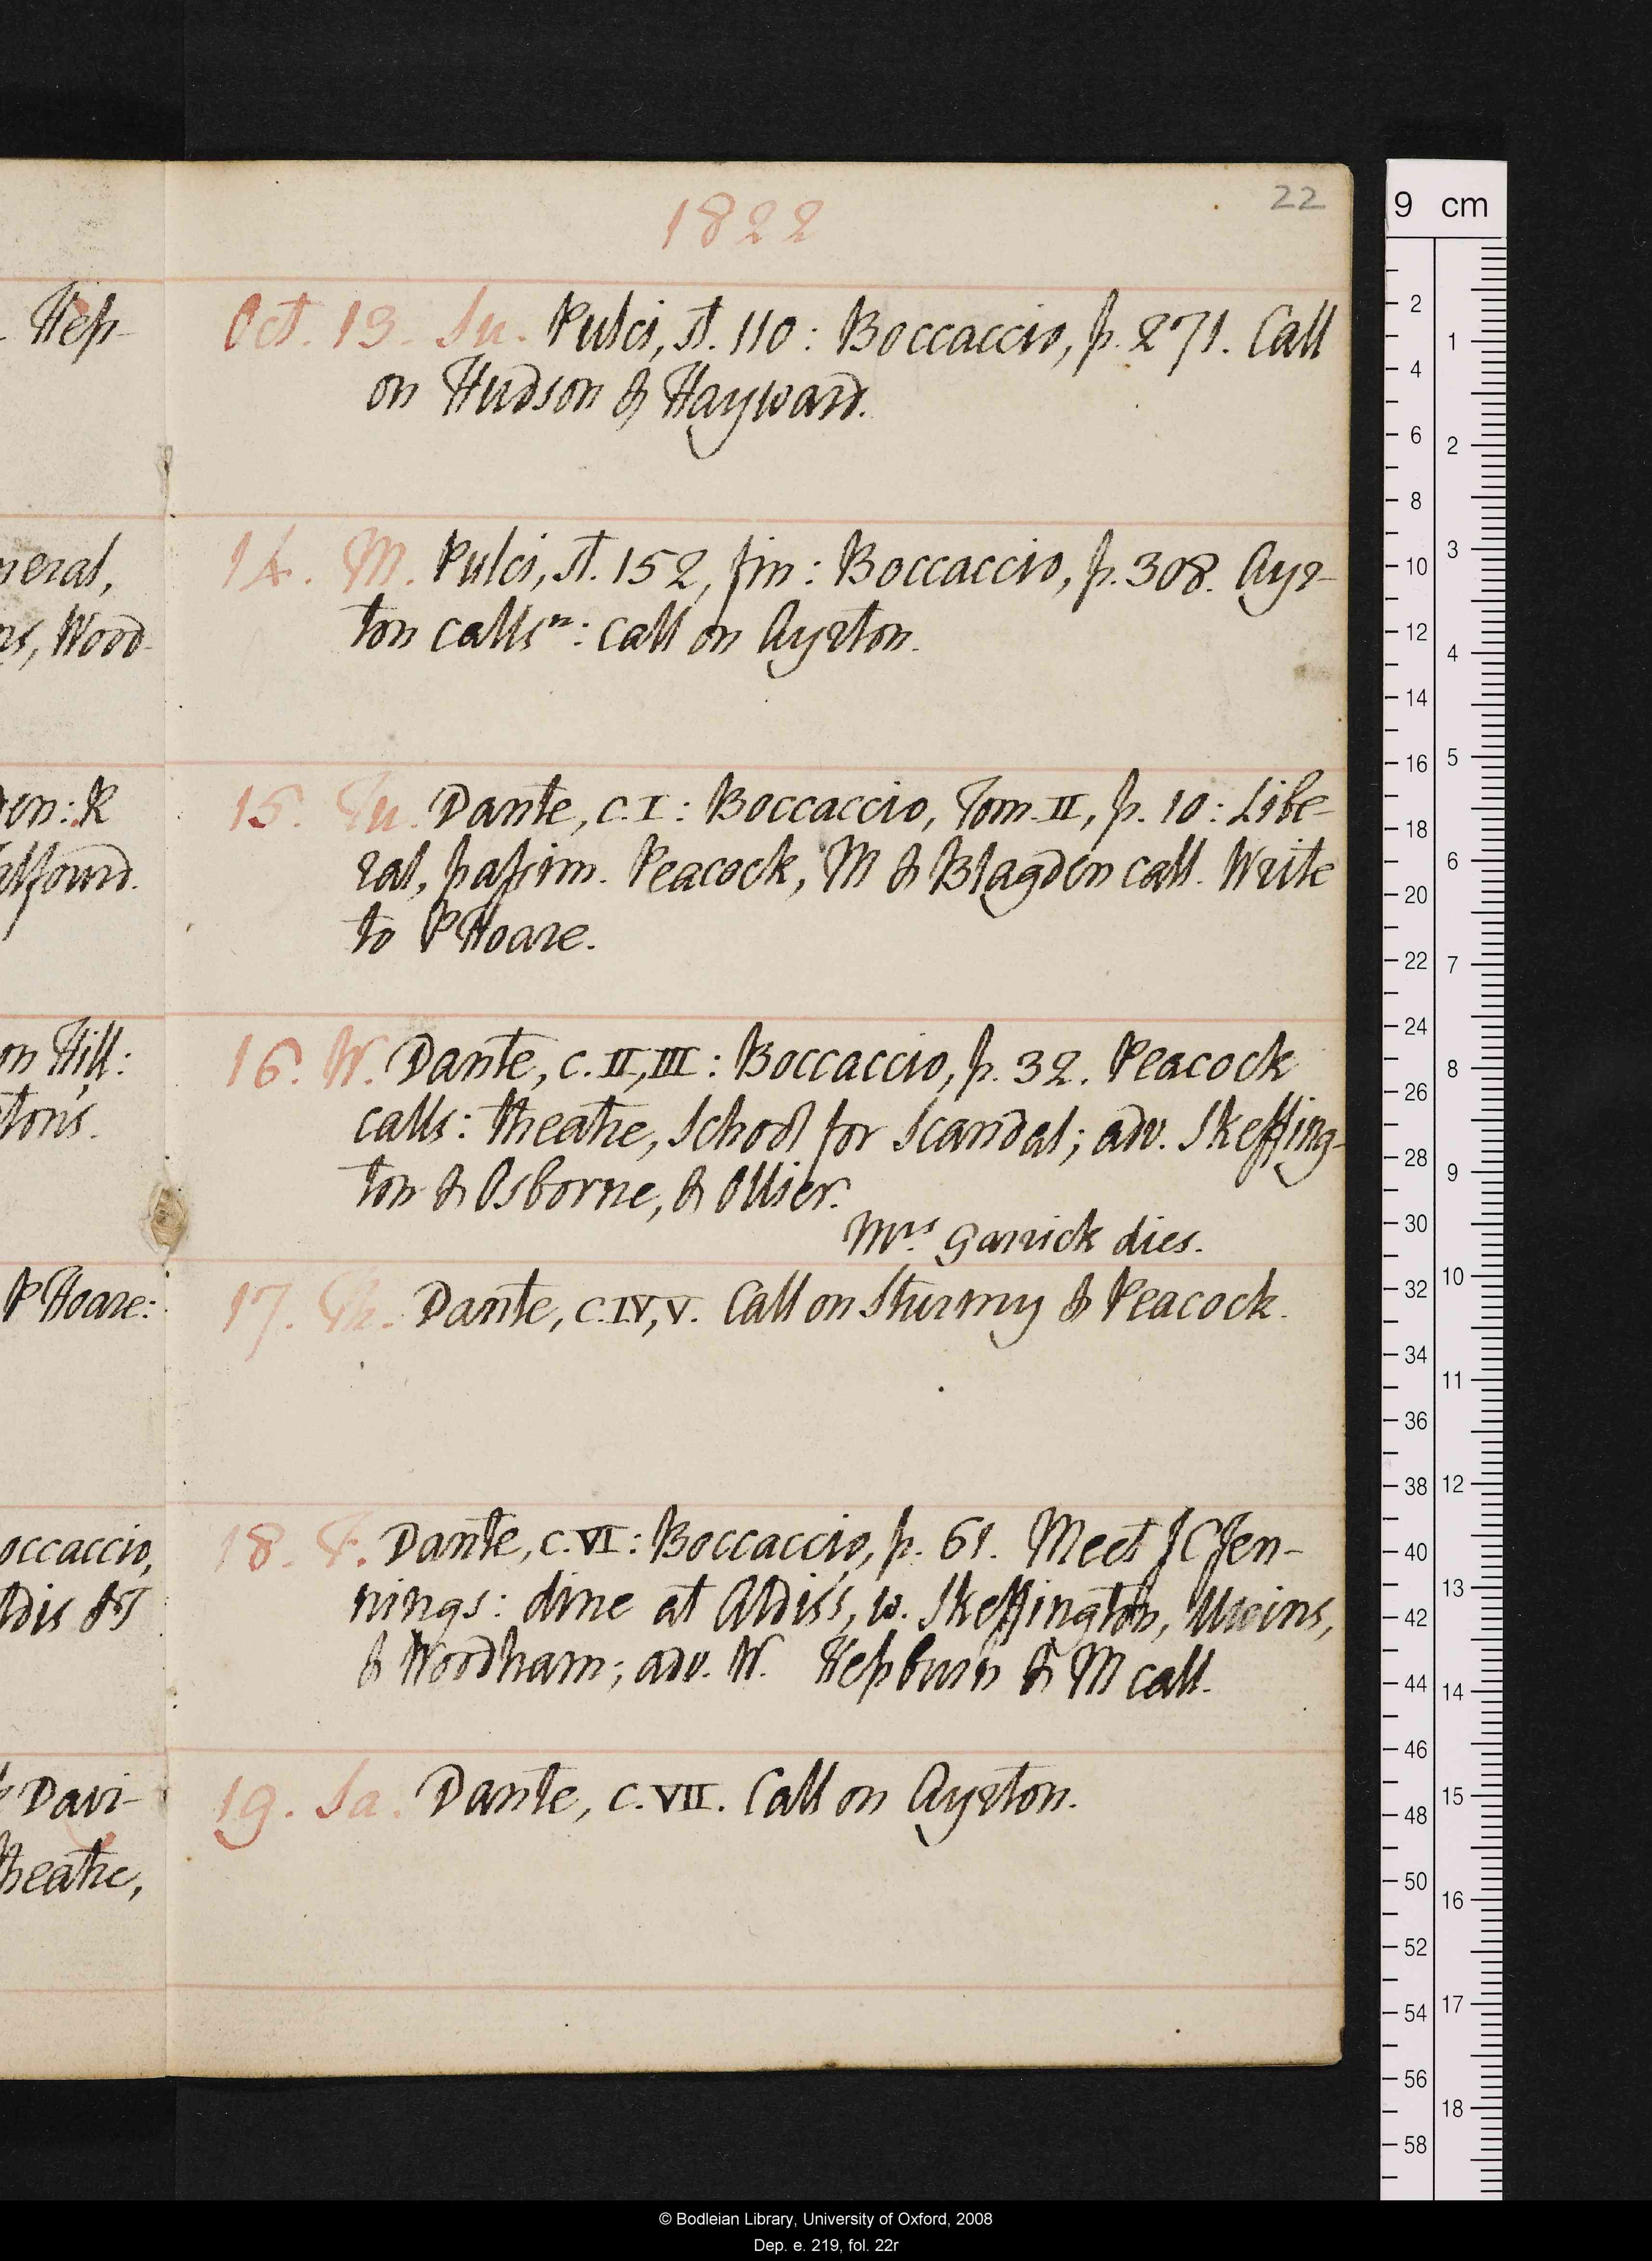 1822
22
Hep-
Oct. 13. Su. Pulci, st. 110: Boccaccio, p. 271. Call
on Hudson & Hayward.
neral,
ns, Wood-
14. M. Pulci, st. 152, fin: Boccaccio, p. 308. Ayr-
ton calls ⁿ: call on Ayrton.
den: R
alfourd.
15. Tu. Dante, c. I: Boccaccio, Tom. II, p. 10: Libe-
ral, passim. Peacock, M & Blagden call. Write
to P Hoare.
on Hill:
ton's.
16. W. Dante, c. II, III: Boccaccio, p. 32. Peacock
calls: theatre, School for Scandal; adv. Skeffing-
ton & Osborne, & Ollier.
Mrs Garrick dies.
P Hoare:
17. Th. Dante, c. IV, V. Call on Sturmy & Peacock.
occaccio,
ldis & T
18. F. Dante, c. VI: Boccaccio, p. 61. Meet J C Jen-
nings: dine at Aldis's, w. Skeffington, Uwins,
& Woodham; adv. W. Hepburn & M call.
Davi-
heatre,
19. Sa. Dante, c. VII. Call on Ayrton.
9 cm
2
4
6
8
10
12
14
16
18
20
22
24
26
28
30
32
34
36
38
40
42
44
46
48
50
52
54
56
58
1
2
3
4
5
6
7
8
9
10
11
12
13
14
15
16
17
18
© Bodleian Library, University of Oxford, 2008
Dep. e. 219, fol. 22r